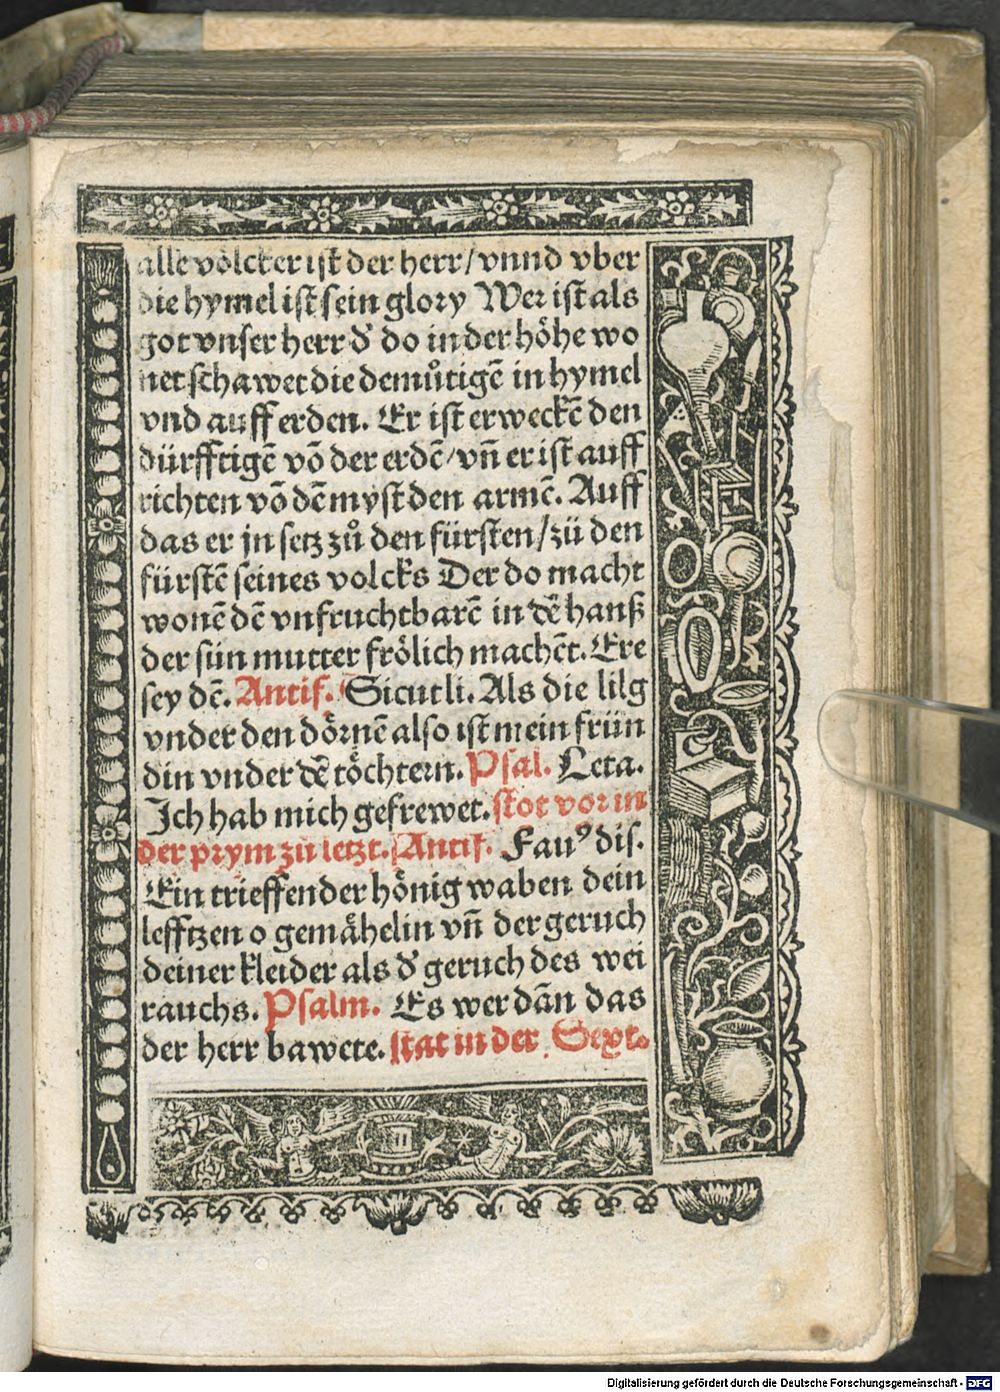 alle völcker ist der herr/vnnd vber
die hymel ist sein glory Wer ist als
got vnser herr d̕ do in der höhe wo
net schawet die demůtigē in hymel
vnd auff erden. Er ist erweckē den
dürfftigē vō der erdē/vn̄ er ist auff
richten vō dē myst den armē. Auff
das er jn setz zů den fürsten/zü den
fürstē seines volcks Der do macht
wonē dē vnfruchtbarē in dē hanß
der sün mutter frölich machēt. Ere
sey dē. Antif. Sicutli. Als die lilg
vnder den dörnē also ist mein frün
din vnder dē töchtern. Psal. Leta.
Ich hab mich gefrewet. stot vor in
der prym zü letzt. Antif. Fauꝰ dis.
Ein trieffender hönig waben dein
lefftzen o gemähelin vn̄ der geruch
deiner kleider als d̕ geruch des wei
rauchs. Psalm. Es wer dān das
der herr bawete. stat in der Sext.
Digitalisierung gefördert durch die Deutsche Forschungsgemeinschaft - DFG